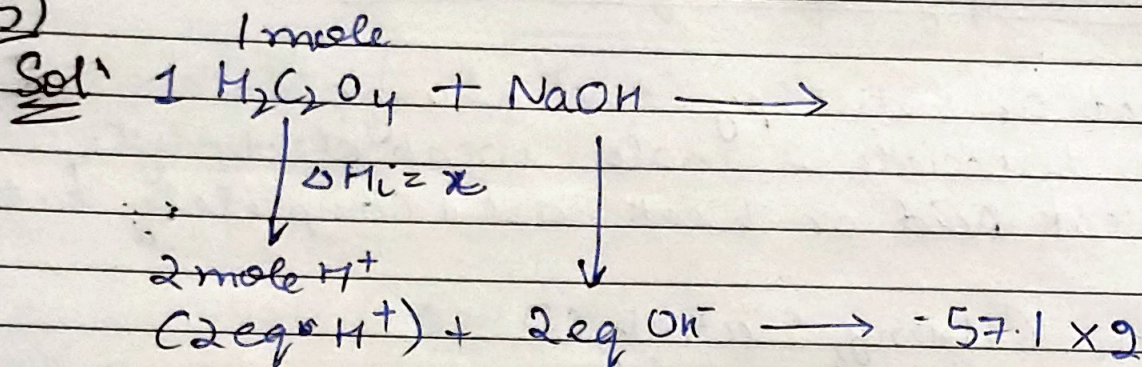 2)
1 mole
Sol' 1 H₂C₂O₄ + NaOH ⟶
↓ ΔHi = x ↓
2 mole H⁺
(2 eq. H⁺) + 2 eq OH⁻ ⟶ -57.1 × 2